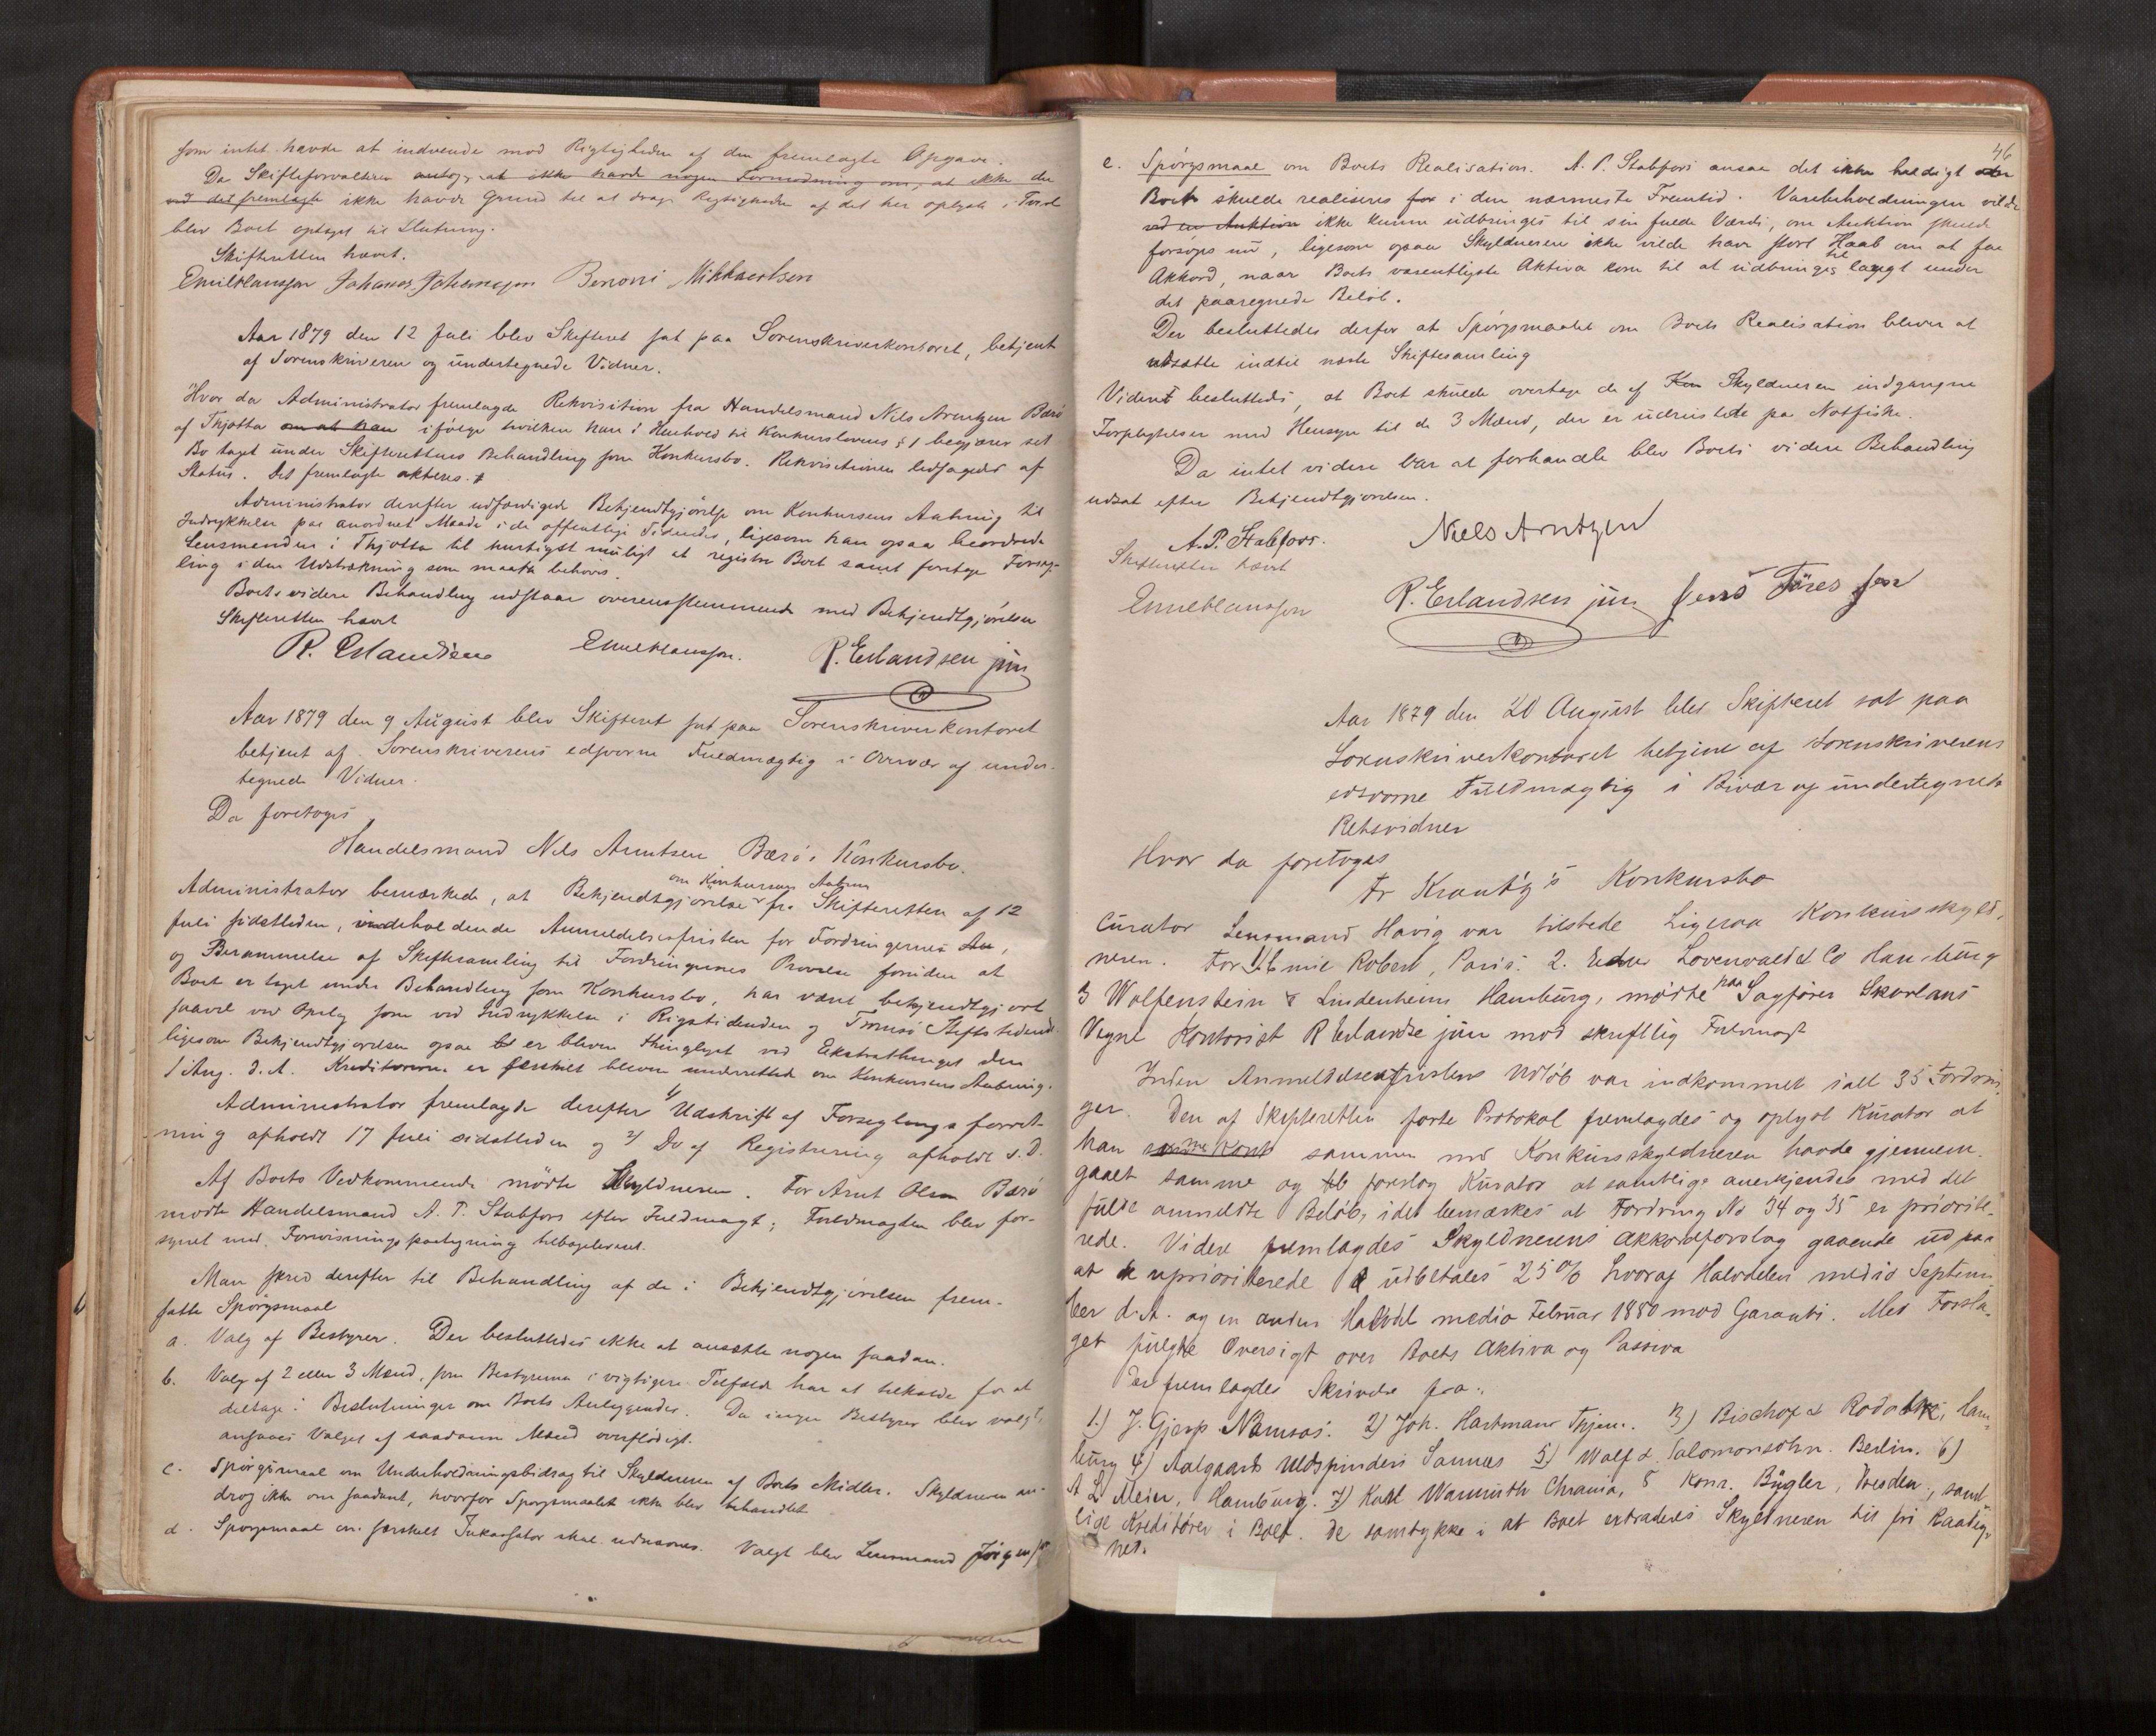 som intet havde at indvende mod Rigtigheden af den fremlagte Opgave.
Da Skifteforvalteren antog, at ikke havde nogen Formodning om, at ikke de
ved det fremlagte ikke havde Grund til at drage Rigtigheden af det her oplyste i Tvivl
blev Boet optaget til Slutning.
Skifteretten hævet.
Emil Hansson Johannes Johannesen Benoni Mikkaelsen
Aar 1879 den 12 Juli blev Skifteret sat paa Sorenskriverkontoret, betjent
af Sorenskriveren og undertegnede Vidner.
Hvor da Administrator fremlagde Rekvisition fra Handelsmand Nils Arentzen Bærø
af Thjøtta om at han ifølge hvilken han i Henhold til Konkurslovens § 1 begjærer sit
Bo taget under Skifterettens Behandling som Konkursbo. Rekvisitionen ledsagedes af
Status. Det fremlagte akteres.
Administrator derefter udfærdigede Bekjendtgjørelse om Konkursens Aabning til
Indrykkelse paa anordnet Maade i de offentlige Tidender, ligesom han ogsaa beordrede
Lensmanden i Thjøtta til hurtigst muligt at registre Boet samt foretage Forseg-
ling i den Udstrækning som maatte behøves.
Boets videre Behandling udstaar overensstemmende med Bekjendtgjørelsen
Skifteretten hævet
R. Erlandsen Emil Hansson. R. Erlandsen jun
Aar 1879 den 9 August blev Skifteret sat paa Sorenskriverkontoret
betjent af Sorenskriverens edsvorne Fuldmægtig i Overvær af under-
tegnede Vidner.
Da foretoges
Handelsmand Nils Arntsen Bærø's Konkursbo.
om Konkursens Aabning
Administrator bemærkede, at Bekjendtgjørelse fra Skifteretten af 12
Juli sidstleden, indeholdende Anmeldelsesfristen for Fordringernes An,
og Berammelse af Skiftesamling til Fordringernes Prøvelse foruden at
Boet er taget under Behandling som Konkursbo, har været bekjendtgjort
saavel ved Opslag som ved Indrykkelse i Rigstidenden og Tromsø Stiftstidende
ligesom Bekjendtgjørelsen ogsaa er bleven thinglyst ved Ekstrathinget den
1 Aug. d. A. Kreditorerne er særskilt bleven underrettede om Konkursens Aabning.
Administrator fremlagde derefter 1/ Udskrift af Forseglingsforret-
ning afholdt 17 Juli sidstleden og 2/ Do af Registrering afholdt s. D.
Af Boets Vedkommende mødte Skyldneren. For Arnt Olsen Bærø
mødte Handelsmand A. P. Stabfors efter Fuldmagt; Fuldmagten blev for-
synet med Forevisningspaategning tilbageleveret.
Man skred derefter til Behandling af de i Bekjendtgjørelsen frem-
satte Spørgsmaal
a. Valg af Bestyrer. Der besluttedes ikke at ansætte nogen saadan.
b. Valg af 2 eller 3 Mænd, som Bestyreren i vigtigere Tilfælde har at tilkalde for at
deltage i Beslutninger om Boets Anliggender. Da ingen Bestyrer blev valgt,
ansaaes Valget af saadanne Mænd overflødigt.
c. Spørgsmaal om Underholdningsbidrag til Skyldneren af Boets Midler. Skyldneren an-
drog ikke om saadant, hvorfor Spørgsmaalet ikke blev behandlet
d. Spørgsmaal om særskilt Inkassator skal udnævnes. Valgt blev Lensmand Jørgens
46
e. Spørgsmaal om Boets Realisation. A. P. Stabfors ansaa det ikke heldigt
Boet skulde realiseres for i den nærmeste Fremtid. Varebeholdningen vilde
ved en Auktion ikke kunne udbringes til sin fulde Værdi, om Auktion skulde
forsøges nu, ligesom ogsaa Skyldneren ikke vilde have stort Haab om at faa
Akkord, naar Boets væsentligste Aktiva kom til at udbringes til langt under
det paaregnede Beløb.
Der besluttedes derfor at Spørgsmaalet om Boets Realisation bliver at
udsætte indtil næste Skiftesamling
Videre besluttedes, at Boet skulde overtage de af Kon Skyldneren indgangne
Forpligtelser med Hensyn til de 3 Mænd, der er udrustede paa Notfiske.
Da intet videre var at forhandle blev Boets videre Behandling
udsat efter Bekjendtgjørelsen.
A. P. Stabfors. Niels Arntzen
Skifteretten hævet
Emil Hansson R. Erlandsen jun Jens Tøresen
Aar 1879 den 20 August blev Skifteret sat paa
Sorenskriverkontoret betjent af Sorenskriverens
edsvorne Fuldmægtig i Bivær af undertegnede
Retsvidner
Hvor da foretoges
Fr Krantz's Konkursbo
Curator Lensmand Havig var tilstede Ligesaa Konkursskyld-
neren. For 1. Emile Robert, Paris. 2. Lovenwald & Co Hamburg
3 Wolfenstein & Lindenheim Hamburg, mødte paa Sagfører Skorlans
Vegne Kontorist R Erlandsen jun med skriftlig Fuldmagt
Inden Anmeldelsesfristens Udløb var indkommet ialt 35 Fordrin-
ger. Den af Skifteretten førte Protokol fremlagdes og oplyste Kurator at
han sammen med Konkursskyldneren havde gjennem-
gaaet samme og foreslog Kurator at samtlige anerkjendes med det
fulde anmeldte Beløb, idet bemærkes at Fordring No 34 og 35 er priorite-
rede. Videre fremlagdes Skyldnerens Akkordforslag gaaende ud paa
at de upriori­terede udbetales 25% hvoraf Halvdelen medio Septem-
ber d. A. og en anden Halvdel medio Februar 1880 mod Garanti. Med Forsla-
get fulgte Oversigt over Boets Aktiva og Passiva
Der fremlagdes Skrivelse fra:
1.) J. Gjerp Namsos. 2) Joh. Hartmann Thjem. 3) Bischof & Rodatz, Ham-
burg 4) Aalgaards Uldspinderi Sannes 5) Wolf & Salomonsohn. Berlin. 6)
A L Meier, Hamburg. 7) Karl Warmuth Chrania, 8 Konr. Bügler, Dresden, samt-
lige Kreditorer i Boet. De samtykke i at Boet extraderes Skyldneren til fri Raadig-
hed.